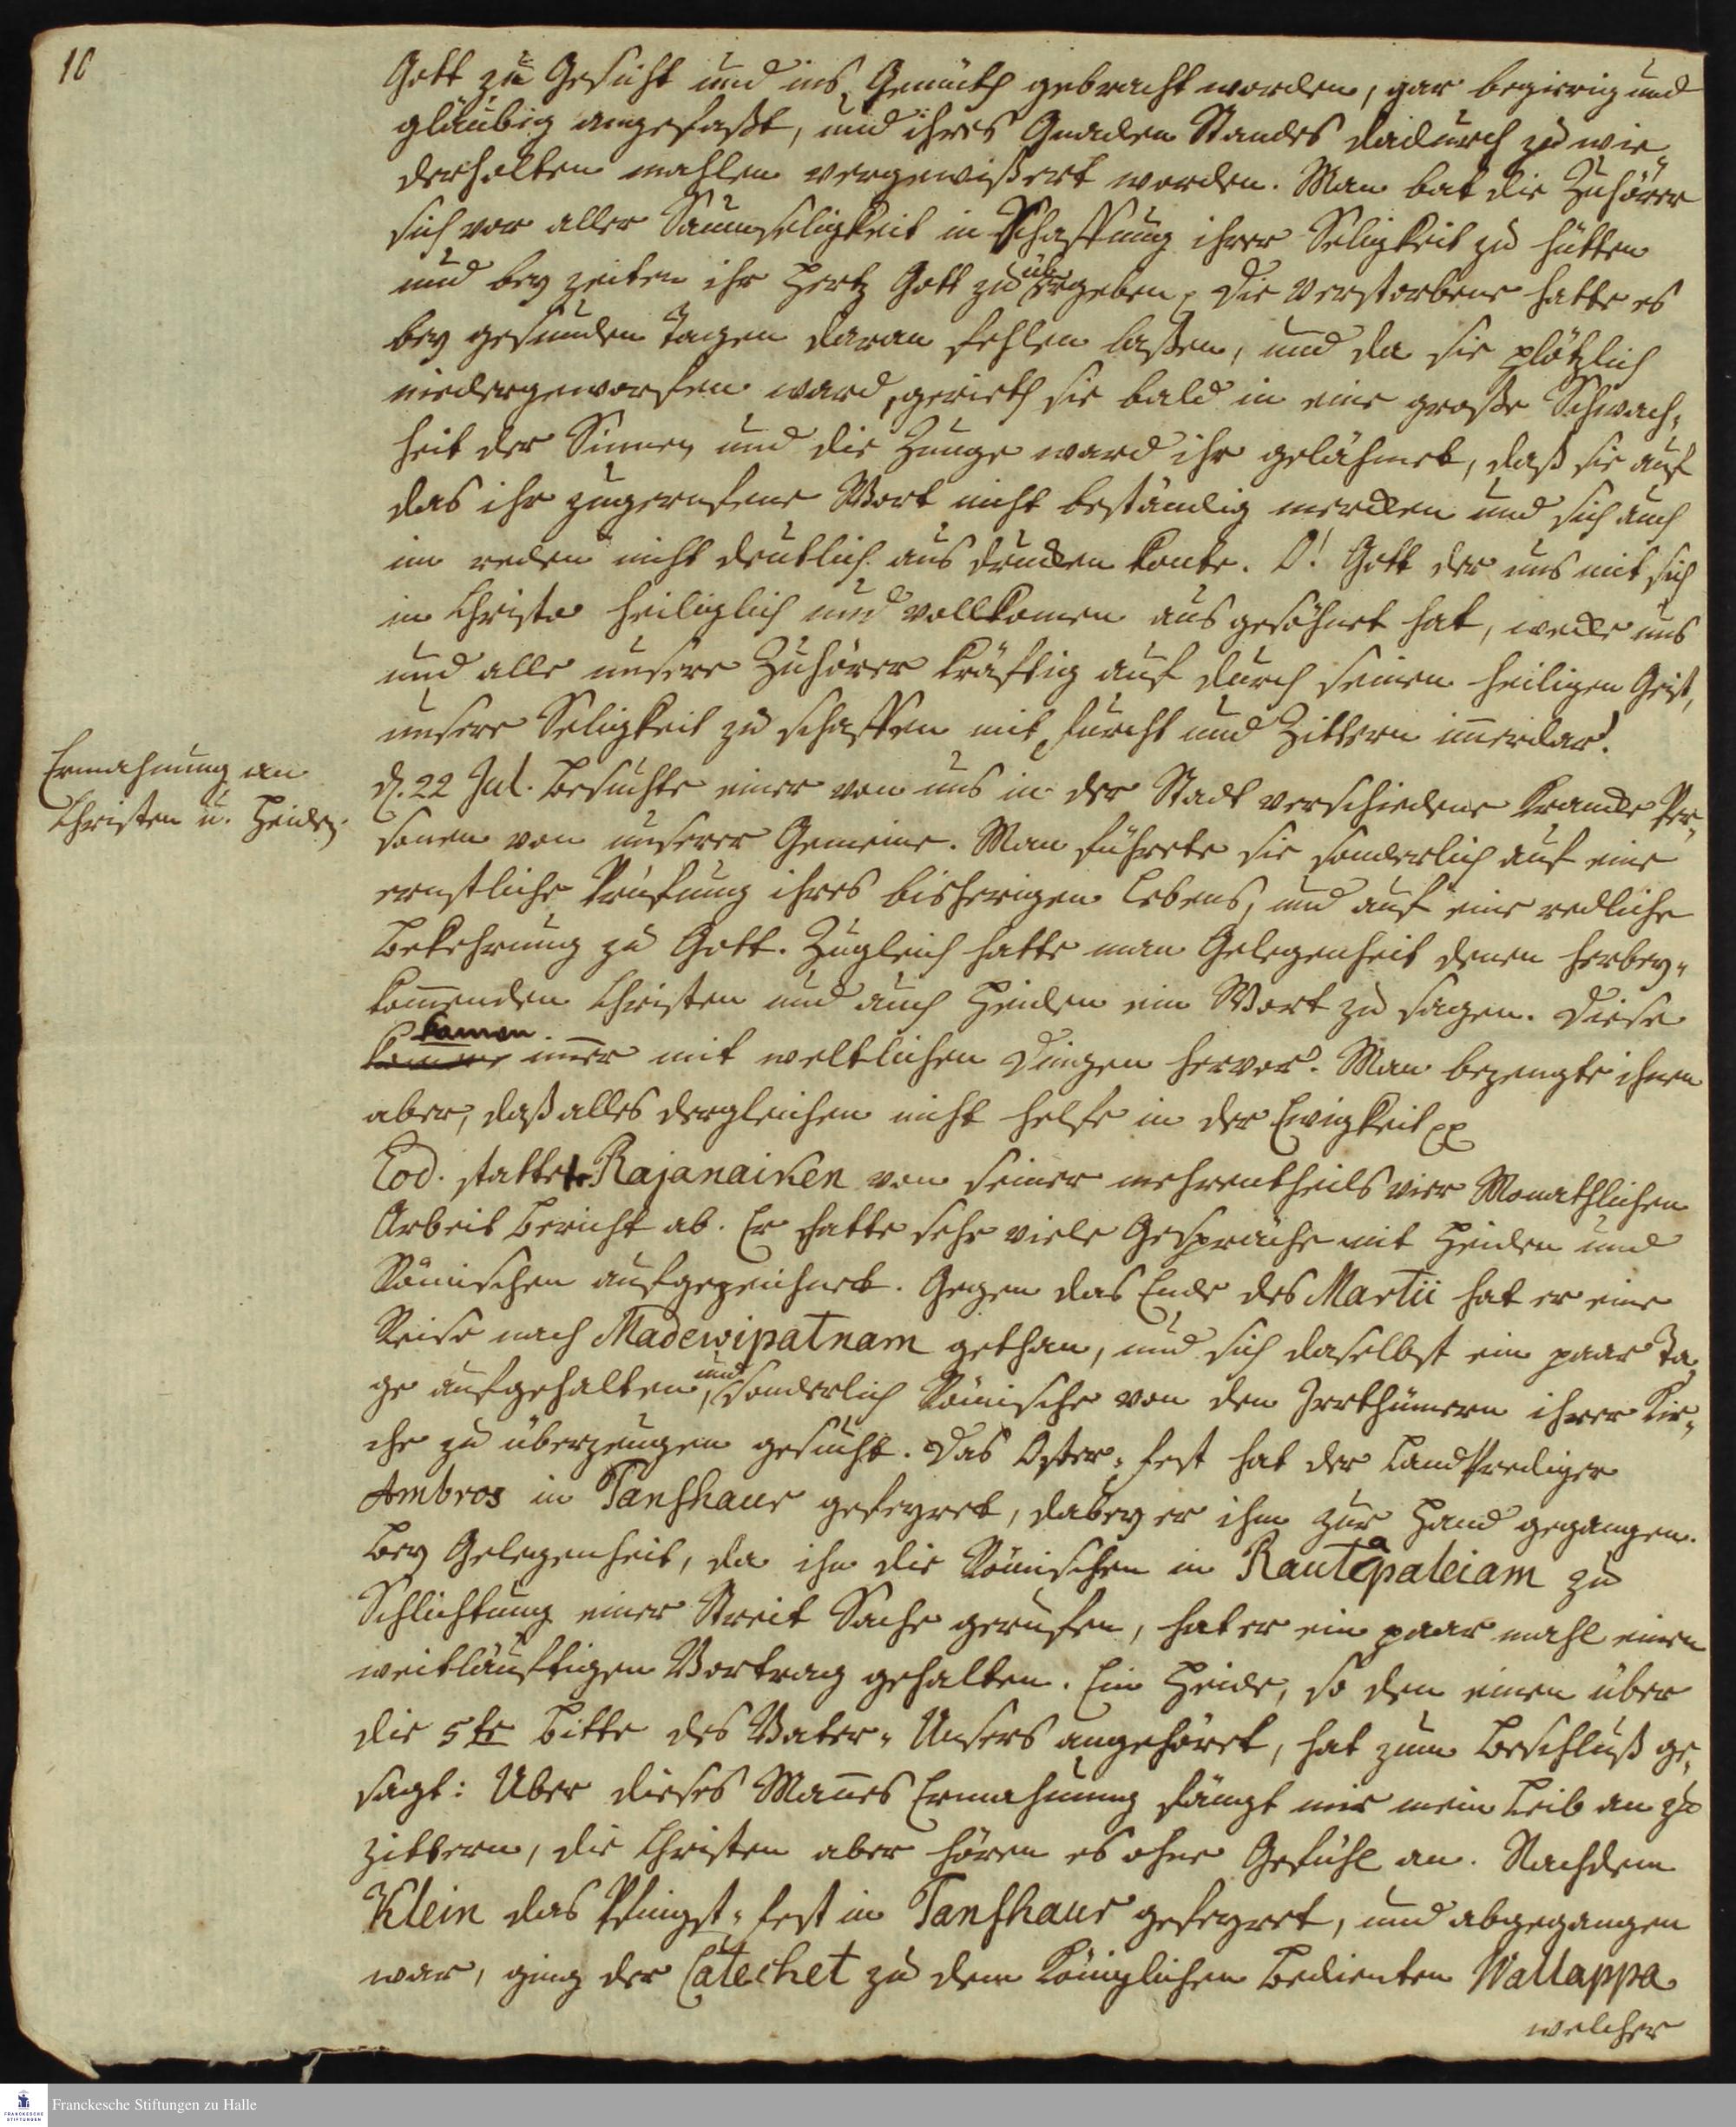 10
Gott zu Gesicht und ins Gemüth gebracht worden, gar begierig und
gläubig angefaßt, und ihres Gnaden Standes dadurch zu wie„
derholten mahlen vergewißert worden. Man bat die Zuhörer
sich vor aller Saumseligkeit in Schaffung ihrer Seligkeit zu hütten
und bey zeiten ihr Hertz Gott zu übergeben. Die Verstorbene hatte es
bey gesunden Tagen daran fehlen laßen, und da sie plötzlich
niedergeworfen ward, gerieth sie bald in eine große Schwach„
heit der Sinnen, und die Zunge ward ihr gelähmet, daß sie auf
das ihr zugerufene Wort nicht beständig mercken und sich auch
im reden nicht deutlich ausdrucken konte. O! Gott der uns mit sich
in Christo heiliglich und vollkomen ausgesöhnet hat, wecke uns
und alle unsere Zuhörer kräftig auf durch seinen heiligen Geist,
unsere Seligkeit zu schaffen mit Furcht und Zittern im̄erdar!
Ermahnung an
Christen u. Heiden.
d. 22 Jul. besuchte einer von uns in der Stadt verschiedene krancke Per„
sonen von unserer Gemeine. Man führete sie sonderlich auf eine
ernstliche Prüfung ihres bisherigen Lebens, und auf eine redliche
Bekehrung zu Gott. Zugleich hatte man Gelegenheit denen herbey„
kom̄enden Christen und auch Heiden ein Wort zu sagen. Diese
kamen im̄er mit weltlichen Dingen hervor. Man bezeugte ihnen
aber, daß alles dergleichen nicht helfe in der Ewigkeit pp
Eod. stattete Rajanaiken von seiner mehrentheils vier Monathlichen
Arbeit Bericht ab. Er hatte sehr viele Gespräche mit Heiden und
Römischen aufgezeichnet. Gegen das Ende des Martii hat er eine
Reise nach Madewipatnam gethan, und sich daselbst ein paar Ta„
ge aufgehalten, und sonderlich Römische von den Irrthümern ihrer Kir„
che zu überzeugen gesucht. Das Oster„fest hat der LandPrediger
Ambros in Tanshaur gefeyret, dabey er ihm zur Hand gegangen.
Bey Gelegenheit, da ihn die Römischen in Rautapaleiam zu
Schlichtung einer Streit Sache gerufen, hat er ein paar mahl einen
weitläuftigen Vortrag gehalten. Ein Heide, so den einen über
die 5te Bitte des Vater„Unsers angehöret, hat zum Beschluß ge„
sagt: Über dieses Man̄es Ermahnung fängt mir mein Leib an zu
zittern, die Christen aber hören es ohne Gefühl an. Nachdem
Klein das Pfingst„fest in Tanshaur gefeyret, und abgegangen
war, ging der Catechet zu dem Königlichen Bedienten Wallappa
welcher
Franckesche Stiftungen zu Halle